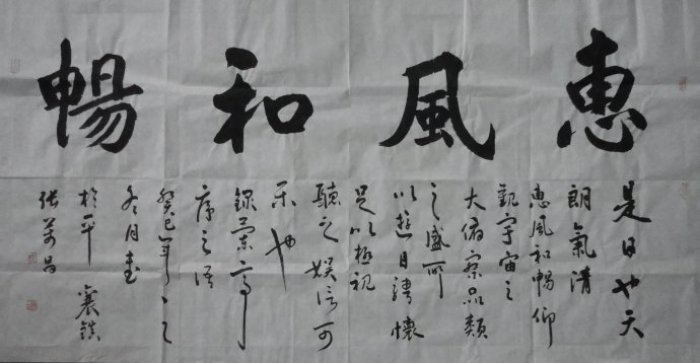 惠風和暢
是日也天
朗氣清
惠風和暢仰
觀宇宙之
大俯察品類
之盛所
以遊目騁懷
足以極視
聽之娛信可
樂也
錄蘭亭
序之語
癸巳年之
冬月書
於平襄鎮
張萬昌